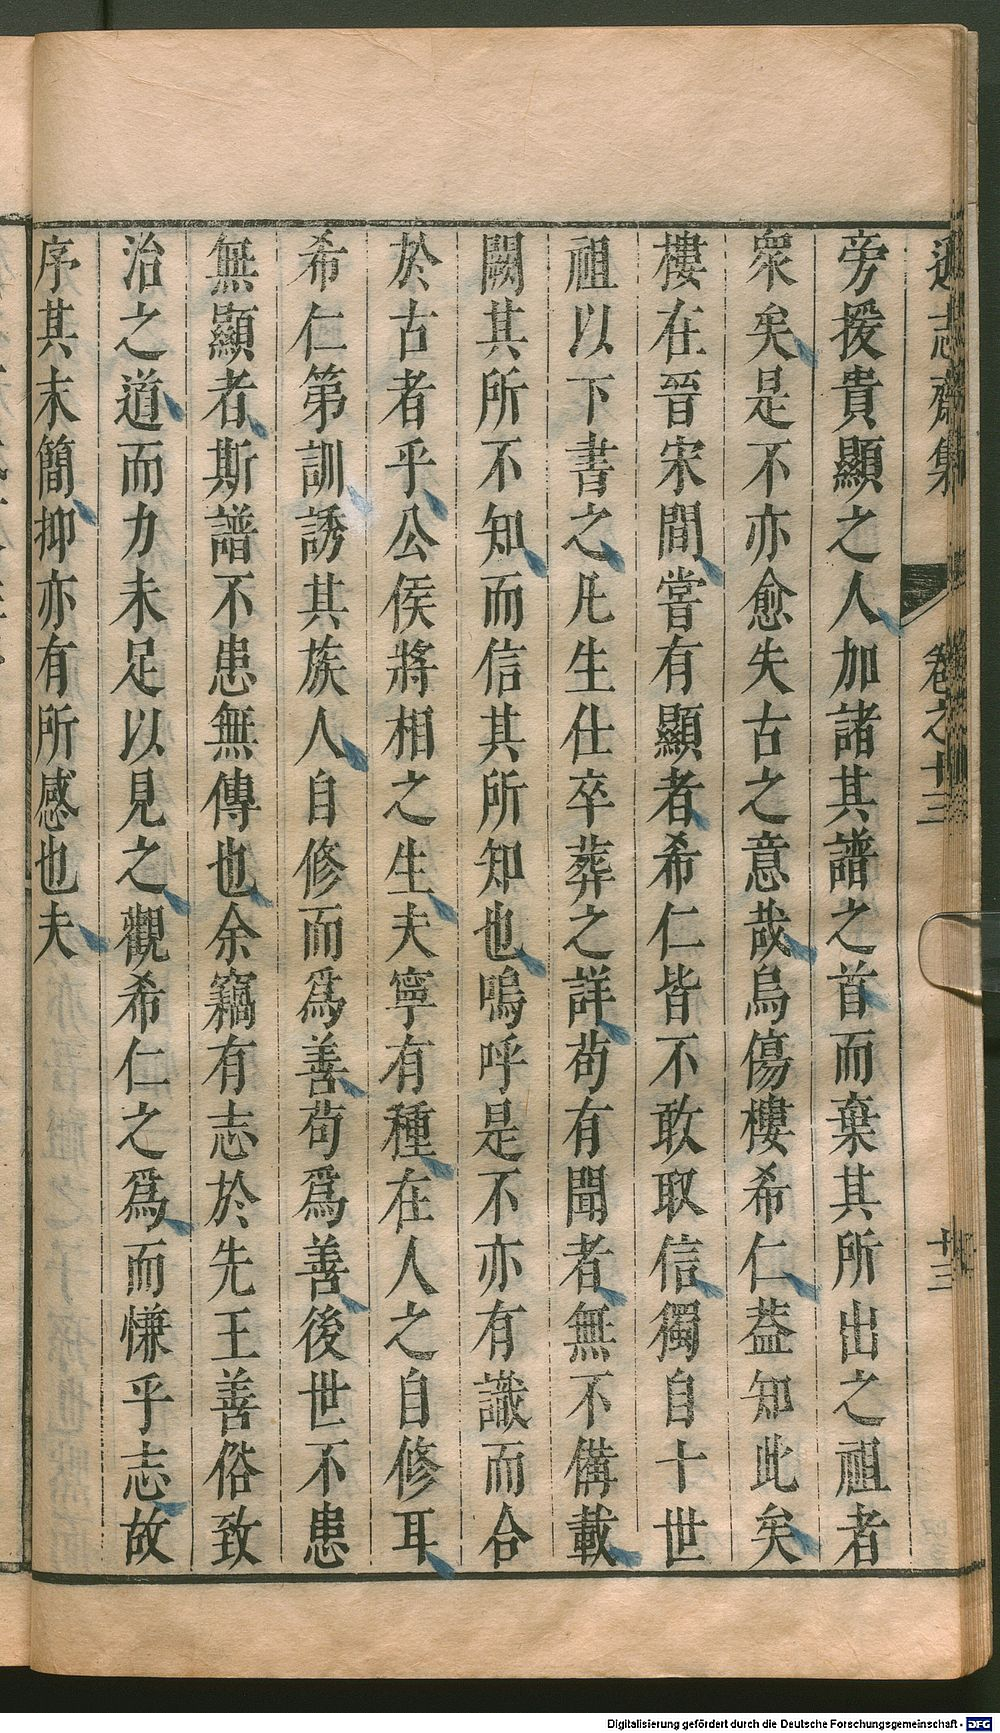 遜志齋集 卷之十三 十三
旁援貴顯之人加諸其譜之首而棄其所出之祖者
衆矣是不亦愈失古之意哉烏傷樓希仁葢知此矣
樓在晉宋間嘗有顯者希仁皆不敢取信獨自十世
祖以下書之凡生仕卒葬之詳茍有聞者無不備載
闕其所不知而信其所知也嗚呼是不亦有識而合
於古者乎公侯將相之生夫寧有種在人之自修耳
希仁第訓誘其族人自修而爲善茍爲善後世不患
無顯者斯譜不患無傳也余竊有志於先王善俗致
治之道而力未足以見之觀希仁之爲而慊乎志故
序其末簡抑亦有所感也夫
Digitalisierung gefördert durch die Deutsche Forschungsgemeinschaft - DFG